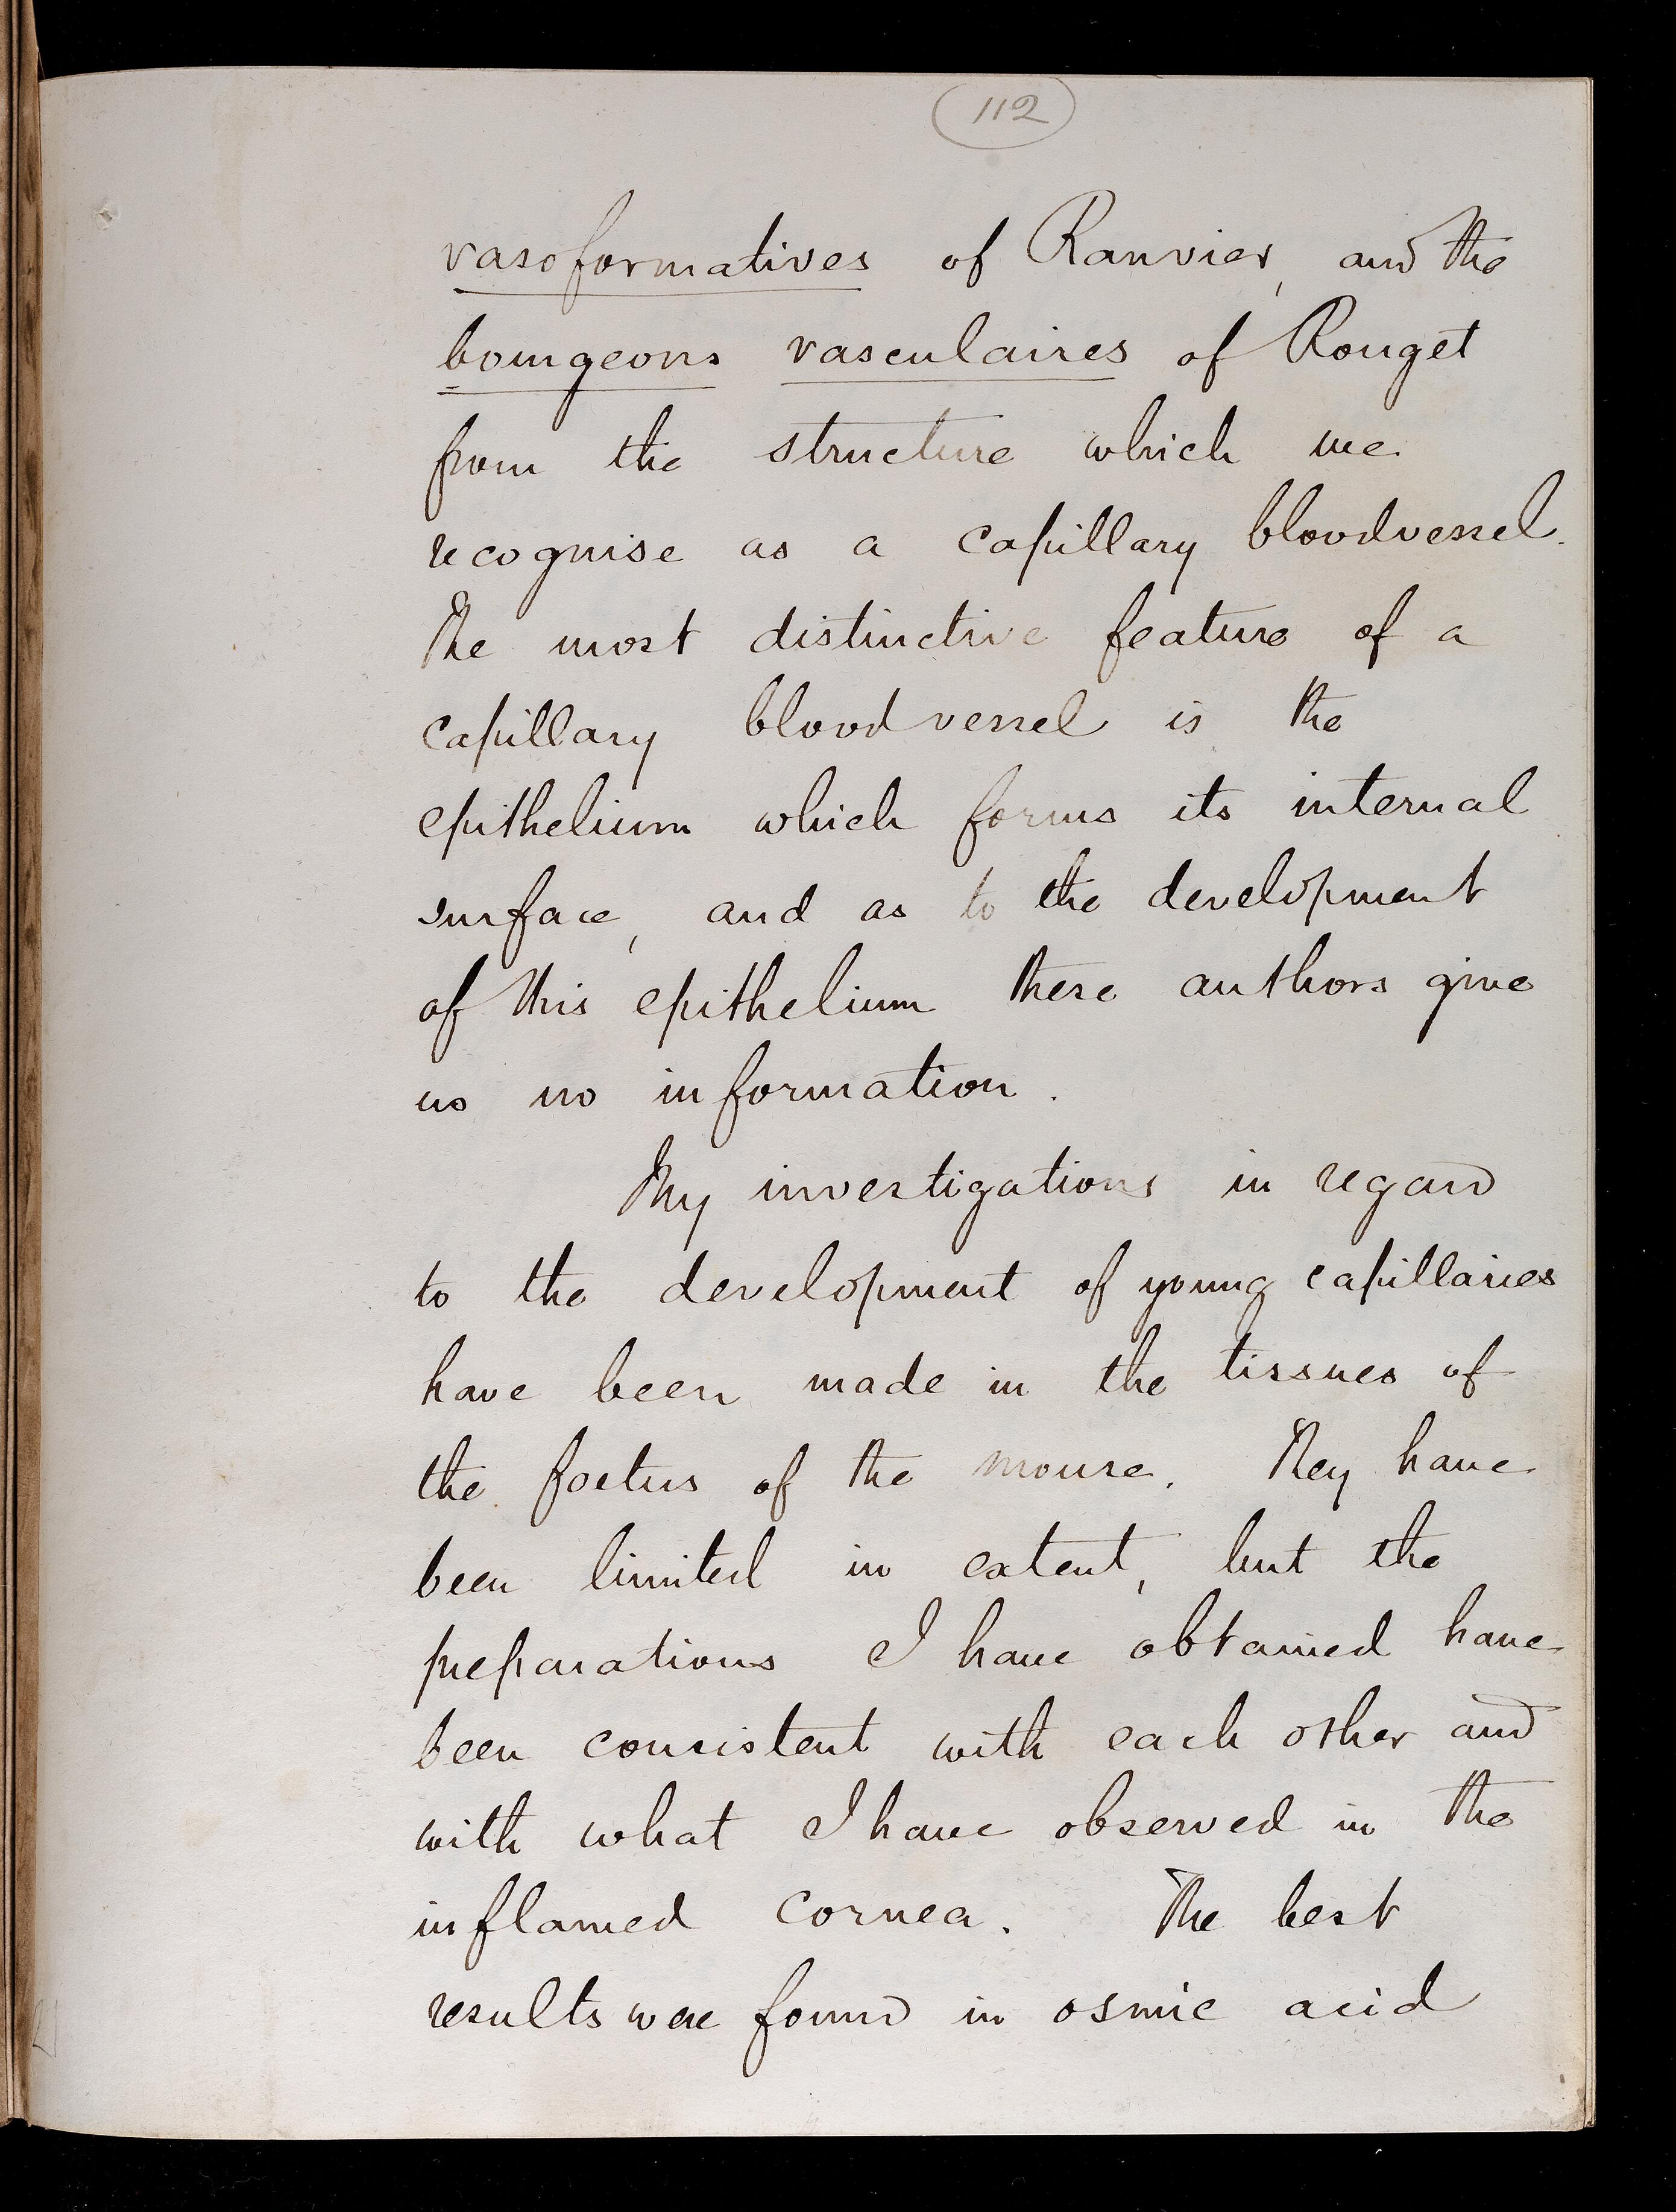 112
vasoformatives of Ranvier, and the
bourgeons vasculaires of Rouget
from the structure which we
recognise as a capillary bloodvessel.
The most distinctive feature of a
capillary bloodvessel is the
epithelium which forms its internal
surface, and as to the development
of this epithelium these authors give
us no information.
My investigations in regard
to the development of young capillaries
have been made in the tissues of
the foetus of the mouse. They have
been limited in extent, but the
preparations I have obtained have
been consistent with each other and
with what I have observed in the
inflamed cornea. The best
results were found in osmic acid